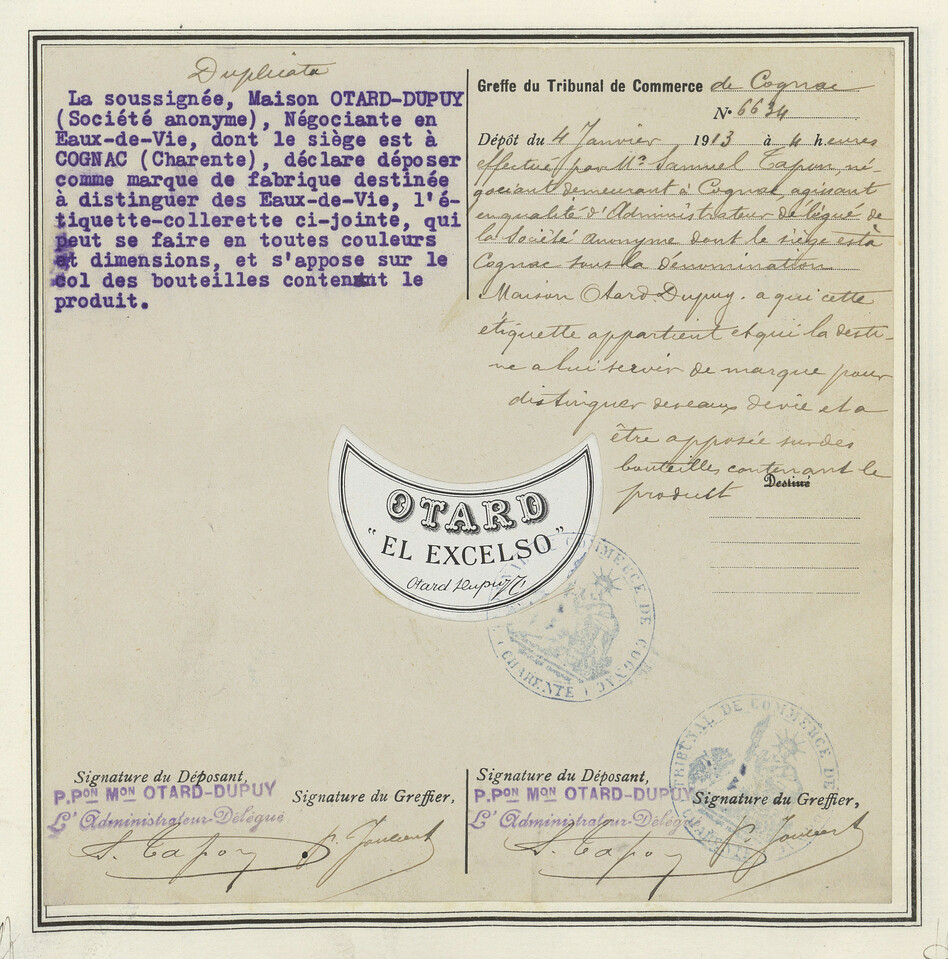 Duplicata
La soussignée, Maison OTARD-DUPUY
(Société anonyme), Négociante en
Eaux-de-Vie, dont le siège est à
COGNAC (Charente), déclare déposer
comme marque de fabrique destinée
à distinguer des Eaux-de-Vie, l'é-
tiquette-collerette ci-jointe, qui
peut se faire en toutes couleurs
et dimensions, et s'appose sur le
col des bouteilles contenant le
produit.
Greffe du Tribunal de Commerce de Cognac
N° 6634
Dépôt du 4 Janvier 1913 à 4 heures
effectué par Mr Samuel Tapon, né-
gociant demeurant à Cognac, agissant
en qualité d'Administrateur délégué de
la Société Anonyme dont le siège est à
Cognac sous la dénomination
Maison Otard Dupuy. a qui cette
étiquette appartient et qui la desti-
ne a lui servir de marque pour
distinguer des eaux de vie et a
être apposée sur des
bouteilles contenant le
produit Destiné
OTARD
"EL EXCELSO"
Otard Dupuy
TRIBUNAL DE COMMERCE DE COGNAC
(CHARENTE)
TRIBUNAL DE COMMERCE DE
Signature du Déposant,
P.PON MON OTARD-DUPUY
L'Administrateur-Délégué
Signature du Greffier,
S. Tapon
Signature du Déposant,
P.PON MON OTARD-DUPUY
L'Administrateur-Délég
Signature du Greffier,
S. Tapon